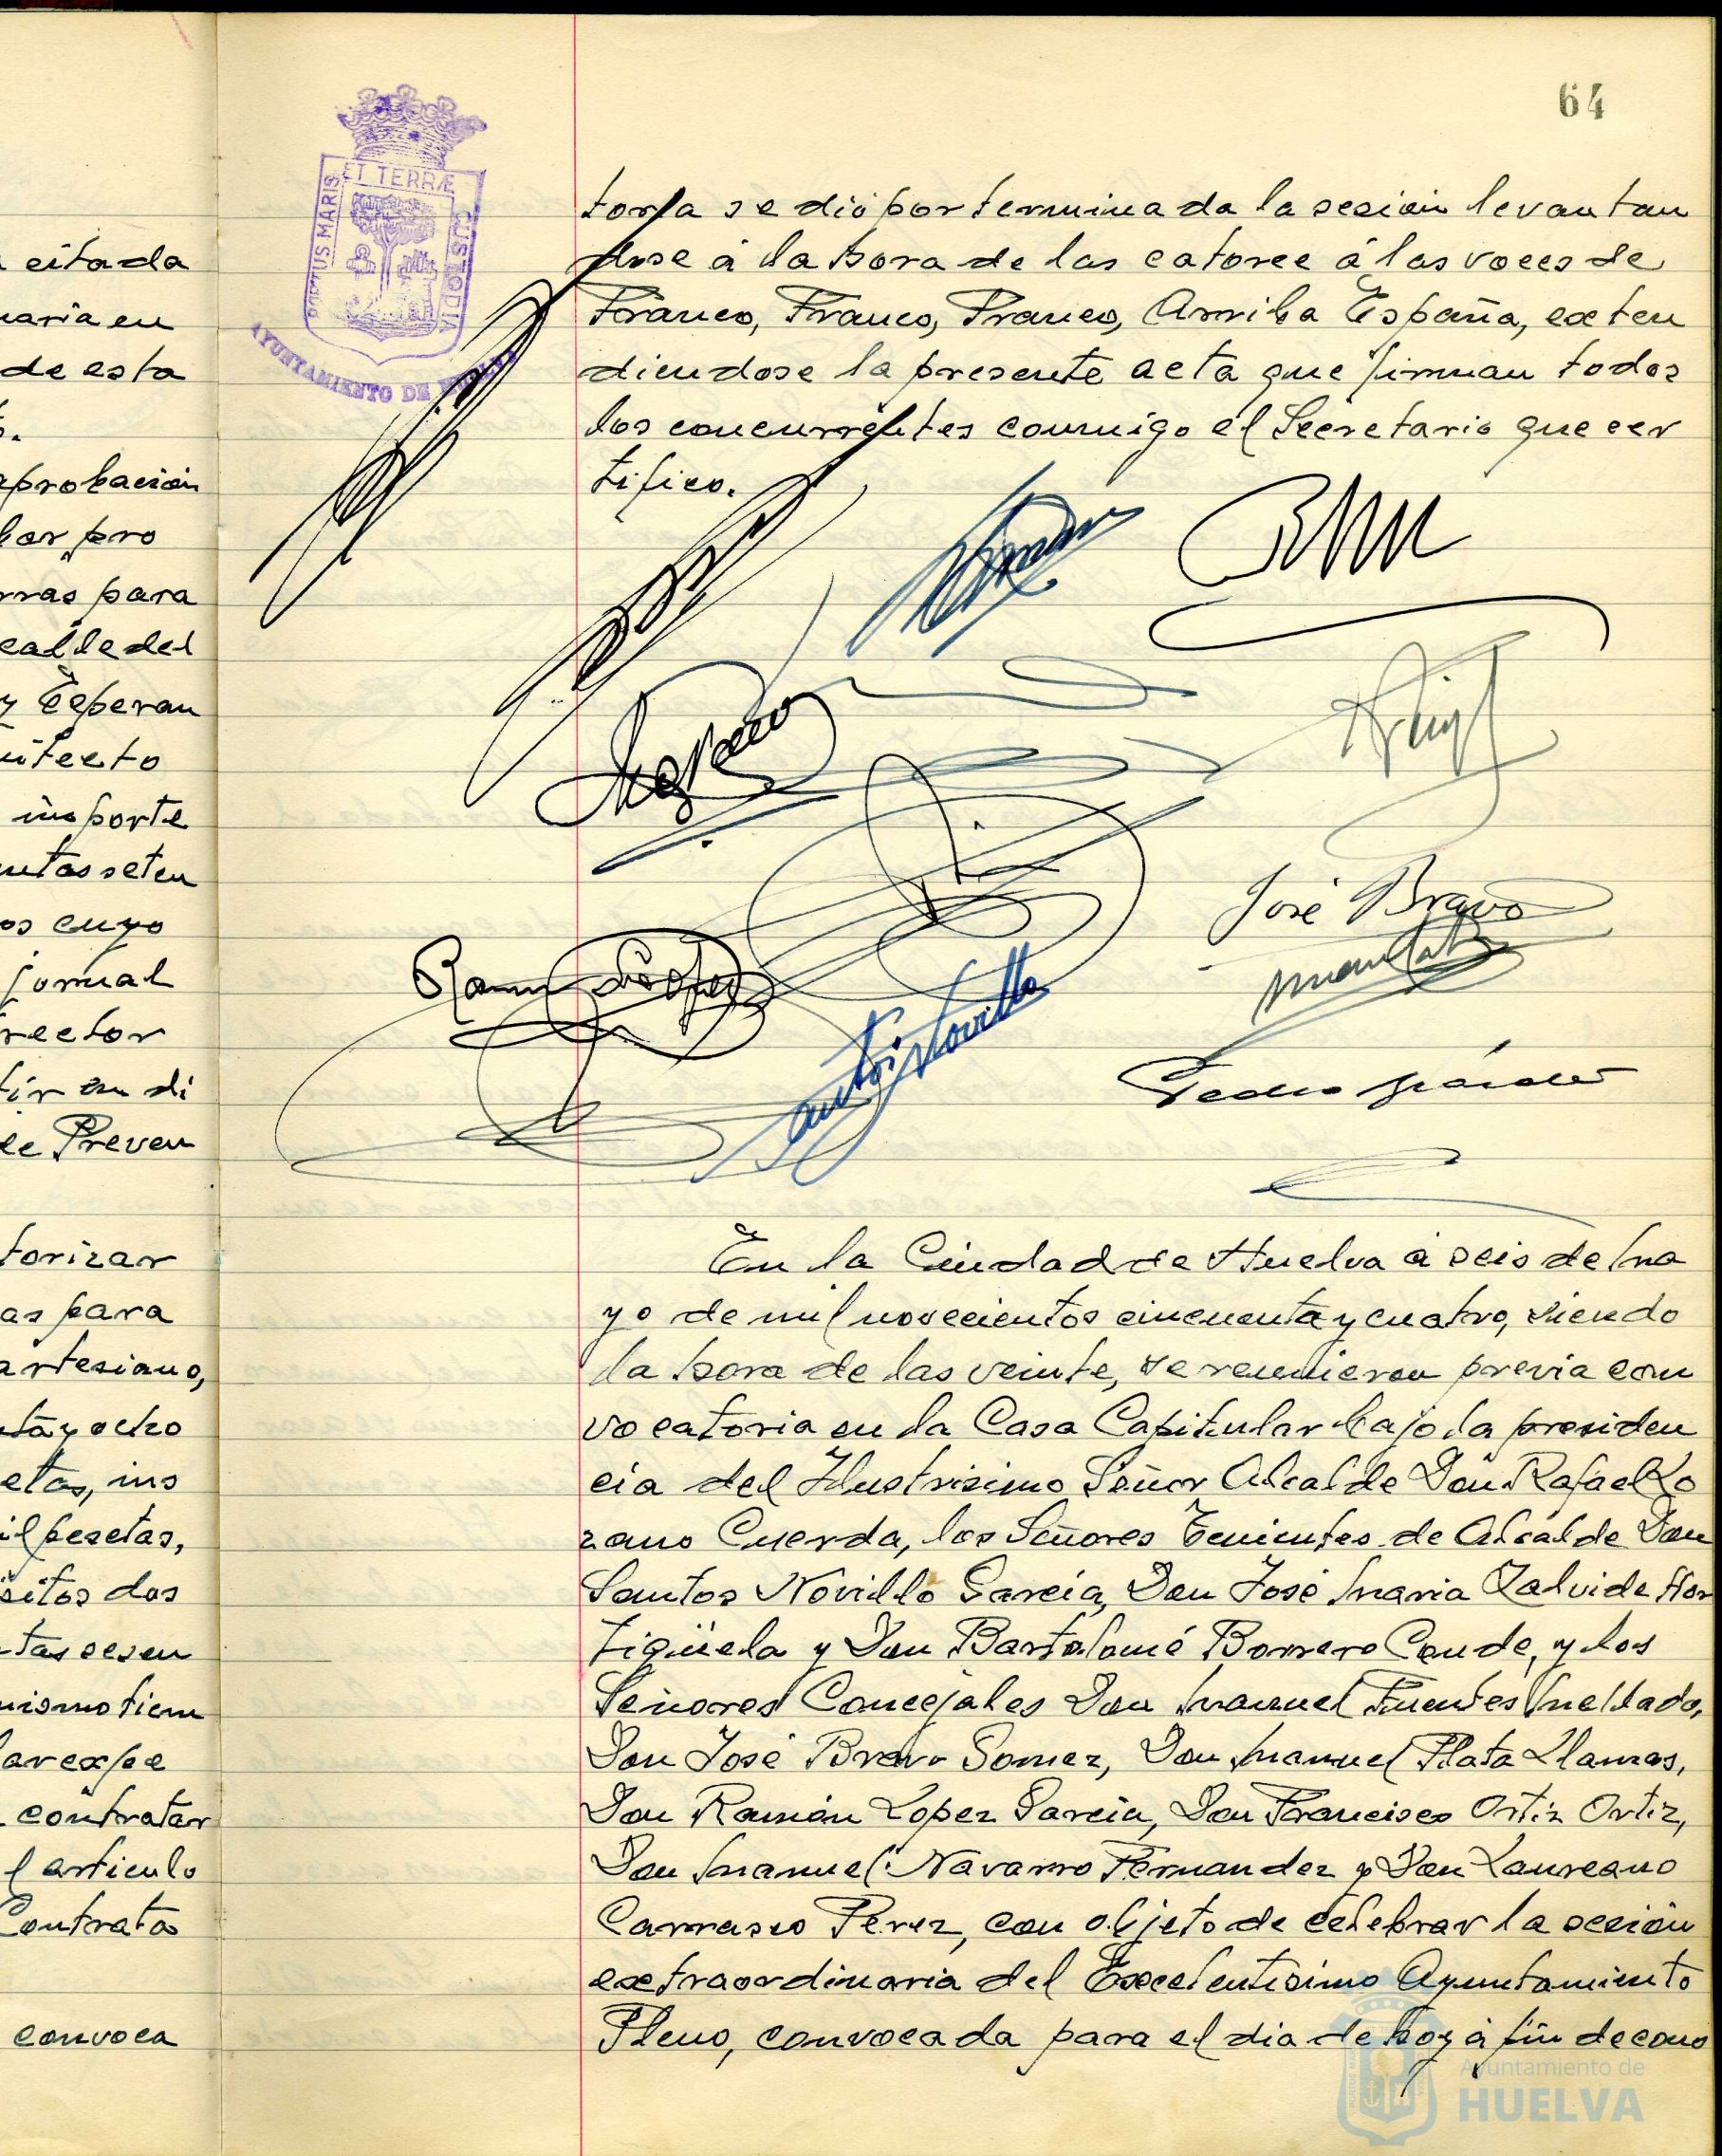 64
PORTUS MARIS ET TERRÆ CUSTODIA
AYUNTAMIENTO DE
citada
naria en
de esta
aprobacion
lar pro
rras para
calle del
y Esperan
uitecto
importe
entas seten
os cuyo
jornal
rector
tir en di
de Preven
torizar
as para
artesiano,
nta y ocho
etas, ins
il pesetas,
sitos dos
tas sesen
mismo tiem
lar expe
contratar
l articulo
Contratos
convoca
toria se dió por terminada la sesión levantan
dose á la hora de las catorce á las voces de
Franco, Franco, Franco, Arriba España, exten
diendose la presente acta que firman todos
los concurrentes conmigo el Secretario que cer
tifico.
José Bravo
Ramon Lopez
Pedro
En la Ciudad de Huelva á seis de ma
yo de mil novecientos cincuenta y cuatro, siendo
la hora de las veinte, se reunieron previa con
vocatoria en la Casa Capitular bajo la presiden
cia del Ilustrisimo Señor Alcalde Don Rafael Lo
zano Cuerda, los Señores Tenientes de Alcalde Don
Santos Novillo Garcia, Don José Maria Zalvide Hor
tigüela y Don Bartolomé Borrero Conde, y los
Señores Concejales Don Manuel Fuentes Mellado,
Don José Bravo Gomez, Don Manuel Plata Llamas,
Don Ramón Lopez Garcia, Don Francisco Ortiz Ortiz,
Don Manuel Navarro Fernandez y Don Laureano
Carrasco Perez, con objeto de celebrar la sesión
extraordinaria del Excelentisimo Ayuntamiento
Pleno, convocada para el dia de hoy á fin de cono
Ayuntamiento de
HUELVA